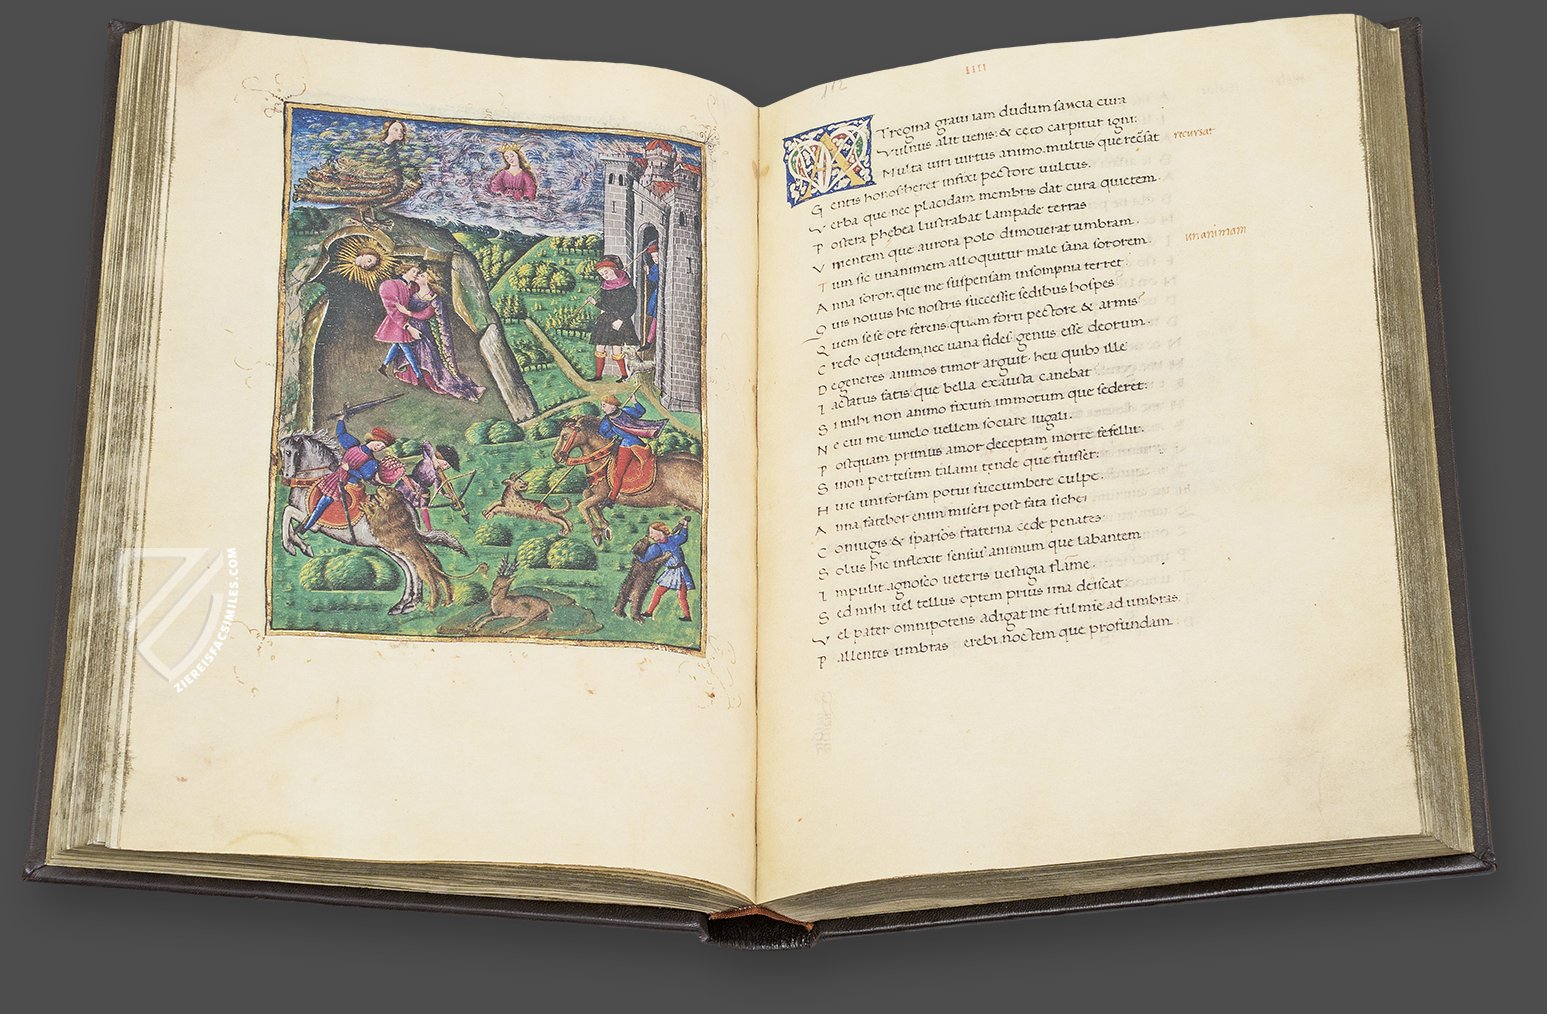 ZIEREISFACSIMILES.COM
IIII
112
AT regina graui iam dudum saucia cura
Vulnus alit uenis: & ceco carpitur igni:
Multa uiri uirtus animo. multus que recursat
recursat
Gentis honos: herent infixi pectore uultus.
Verba que nec placidam membris dat cura quietem.
Postera phebea lustrabat lampade terras
Vmentem que aurora polo dimouerat umbram
Tum sic unanimem alloquitur male sana sororem.
unanimam
Anna soror. que me suspensam insompnia terret
Quis nouus hic nostris successit sedibus hospes
Quem sese ore ferens. quam forti pectore & armis?
Credo equidem. nec uana fides. genus esse deorum.
Degeneres animos timor arguit. heu quibus ille
Iactatus fatis. que bella exausta canebat
Si mihi non animo fixum immotum que sederet:
Ne cui me uinclo uellem sociare iugali.
Postquam primus amor deceptam morte fefellit.
Si non pertesum talami tende que fuisset:
Huic uni forsam potui succumbere culpe.
Anna fatebor enim miseri post fata sichei
Coniugis & sparsos fraterna cede penates
Solus hic inflexit sensus animum que labantem
Impulit. agnosco ueteris uestigia flāme.
Sed mihi uel tellus optem prius ima deiscat
Vel pater omnipotens adigat me fulmine ad umbras.
Pallentes umbras erebi. noctem que profundam